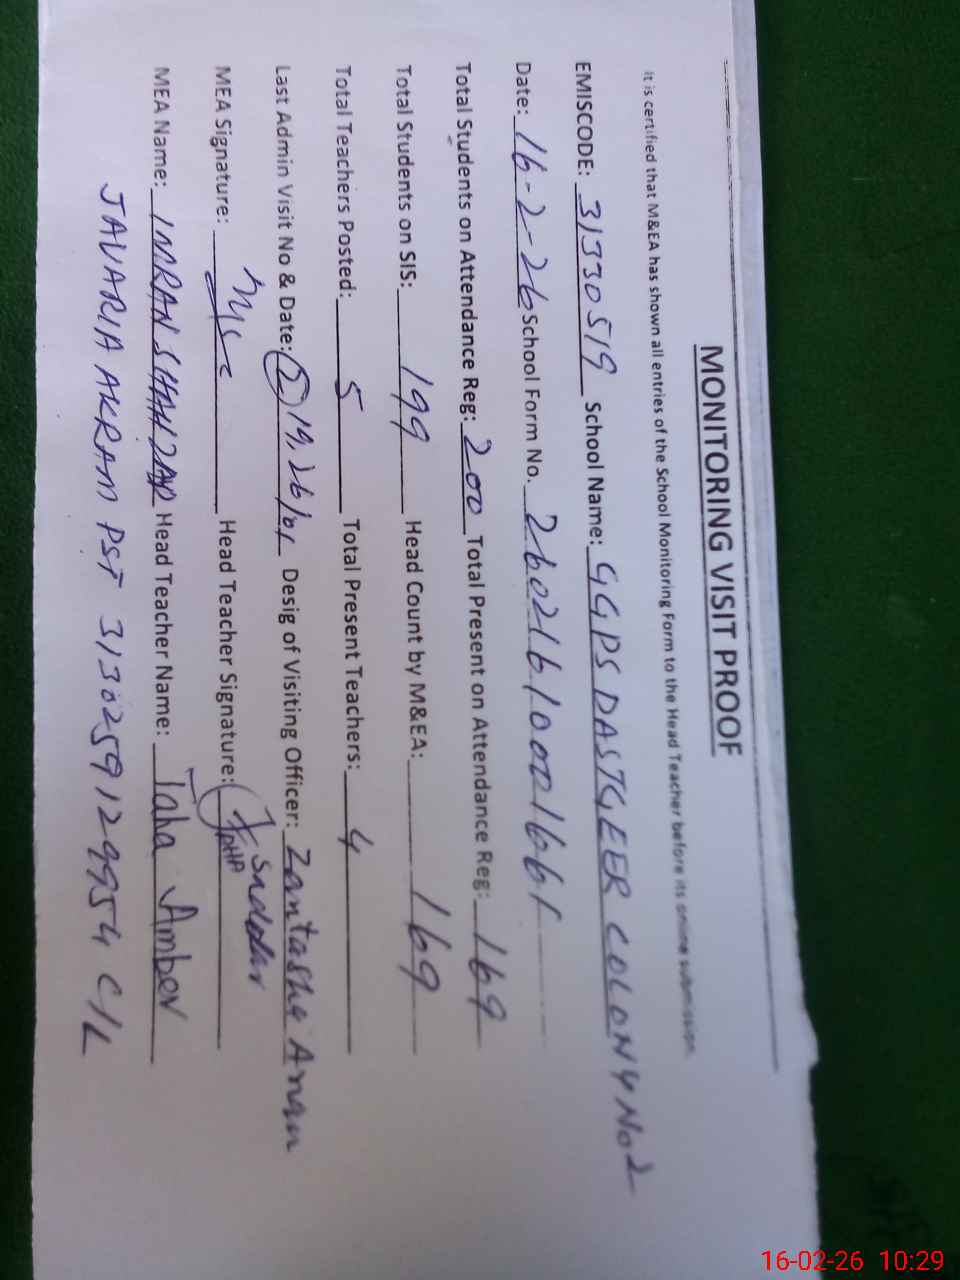 MONITORING VISIT PROOF
It is certified that M&EA has shown all entries of the School Monitoring Form to the Head Teacher before its online submission.
EMISCODE: 31330519 School Name: GGPS DASTGEER COLONY No 2
Date: 16-2-26 School Form No. 26021610001661
Total Students on Attendance Reg: 200 Total Present on Attendance Reg: 169
Total Students on SIS: 199 Head Count by M&EA: 169
Total Teachers Posted: 5 Total Present Teachers: 4
Last Admin Visit No & Date: Desig of Visiting Officer:
MEA Signature: Head Teacher Signature:
MEA Name: IMRAN SHAHZAD Head Teacher Name: Taha Amber
JAVARIA AKRAM PST 3130259129954 C/L
16-02-26 10:29